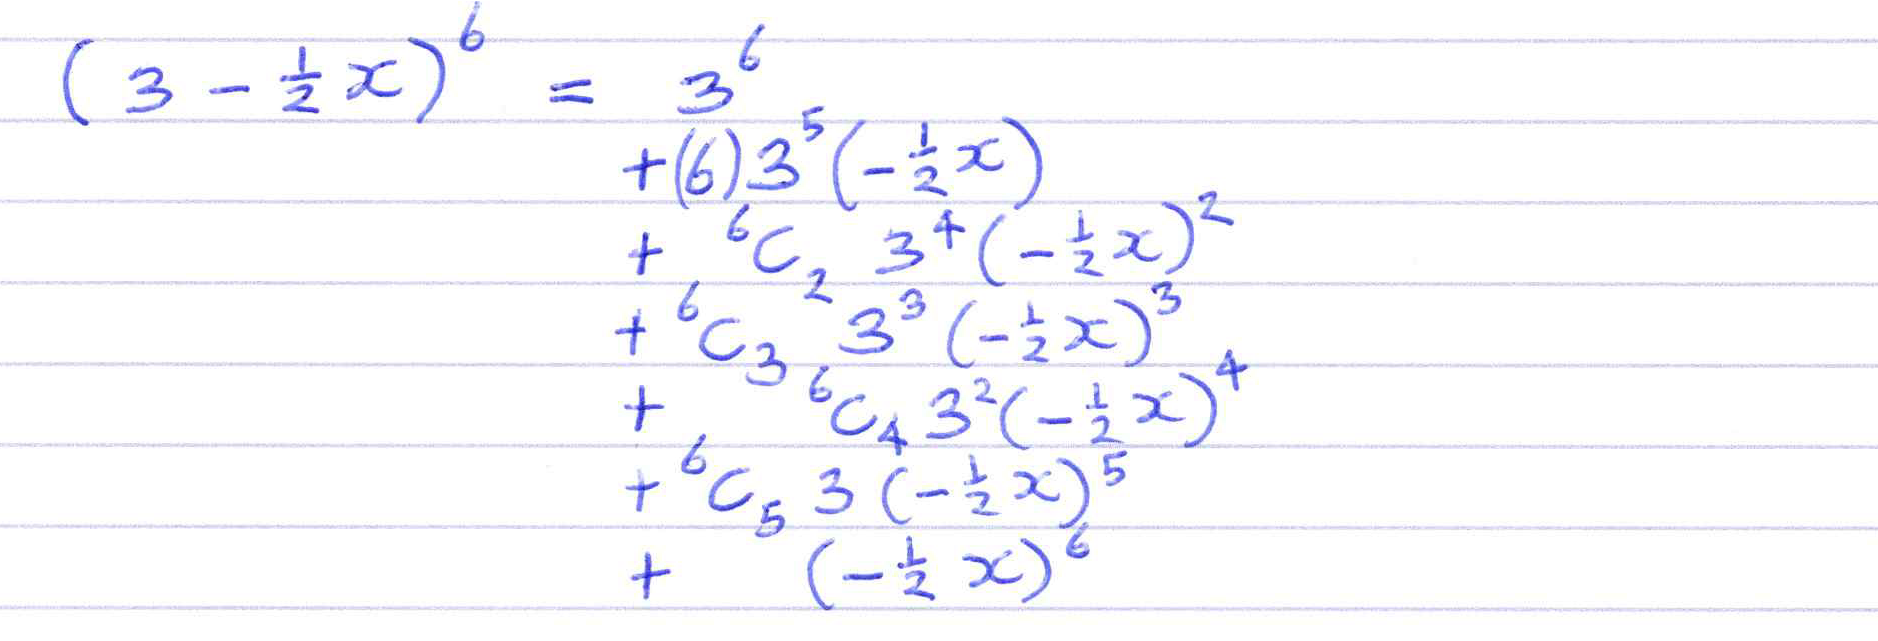 (3 - ½x)⁶ = 3⁶
+(6)3⁵(-½x)
+ ⁶C₂ 3⁴(-½x)²
+ ⁶C₃ 3³(-½x)³
+ ⁶C₄ 3²(-½x)⁴
+ ⁶C₅ 3(-½x)⁵
+ (-½x)⁶